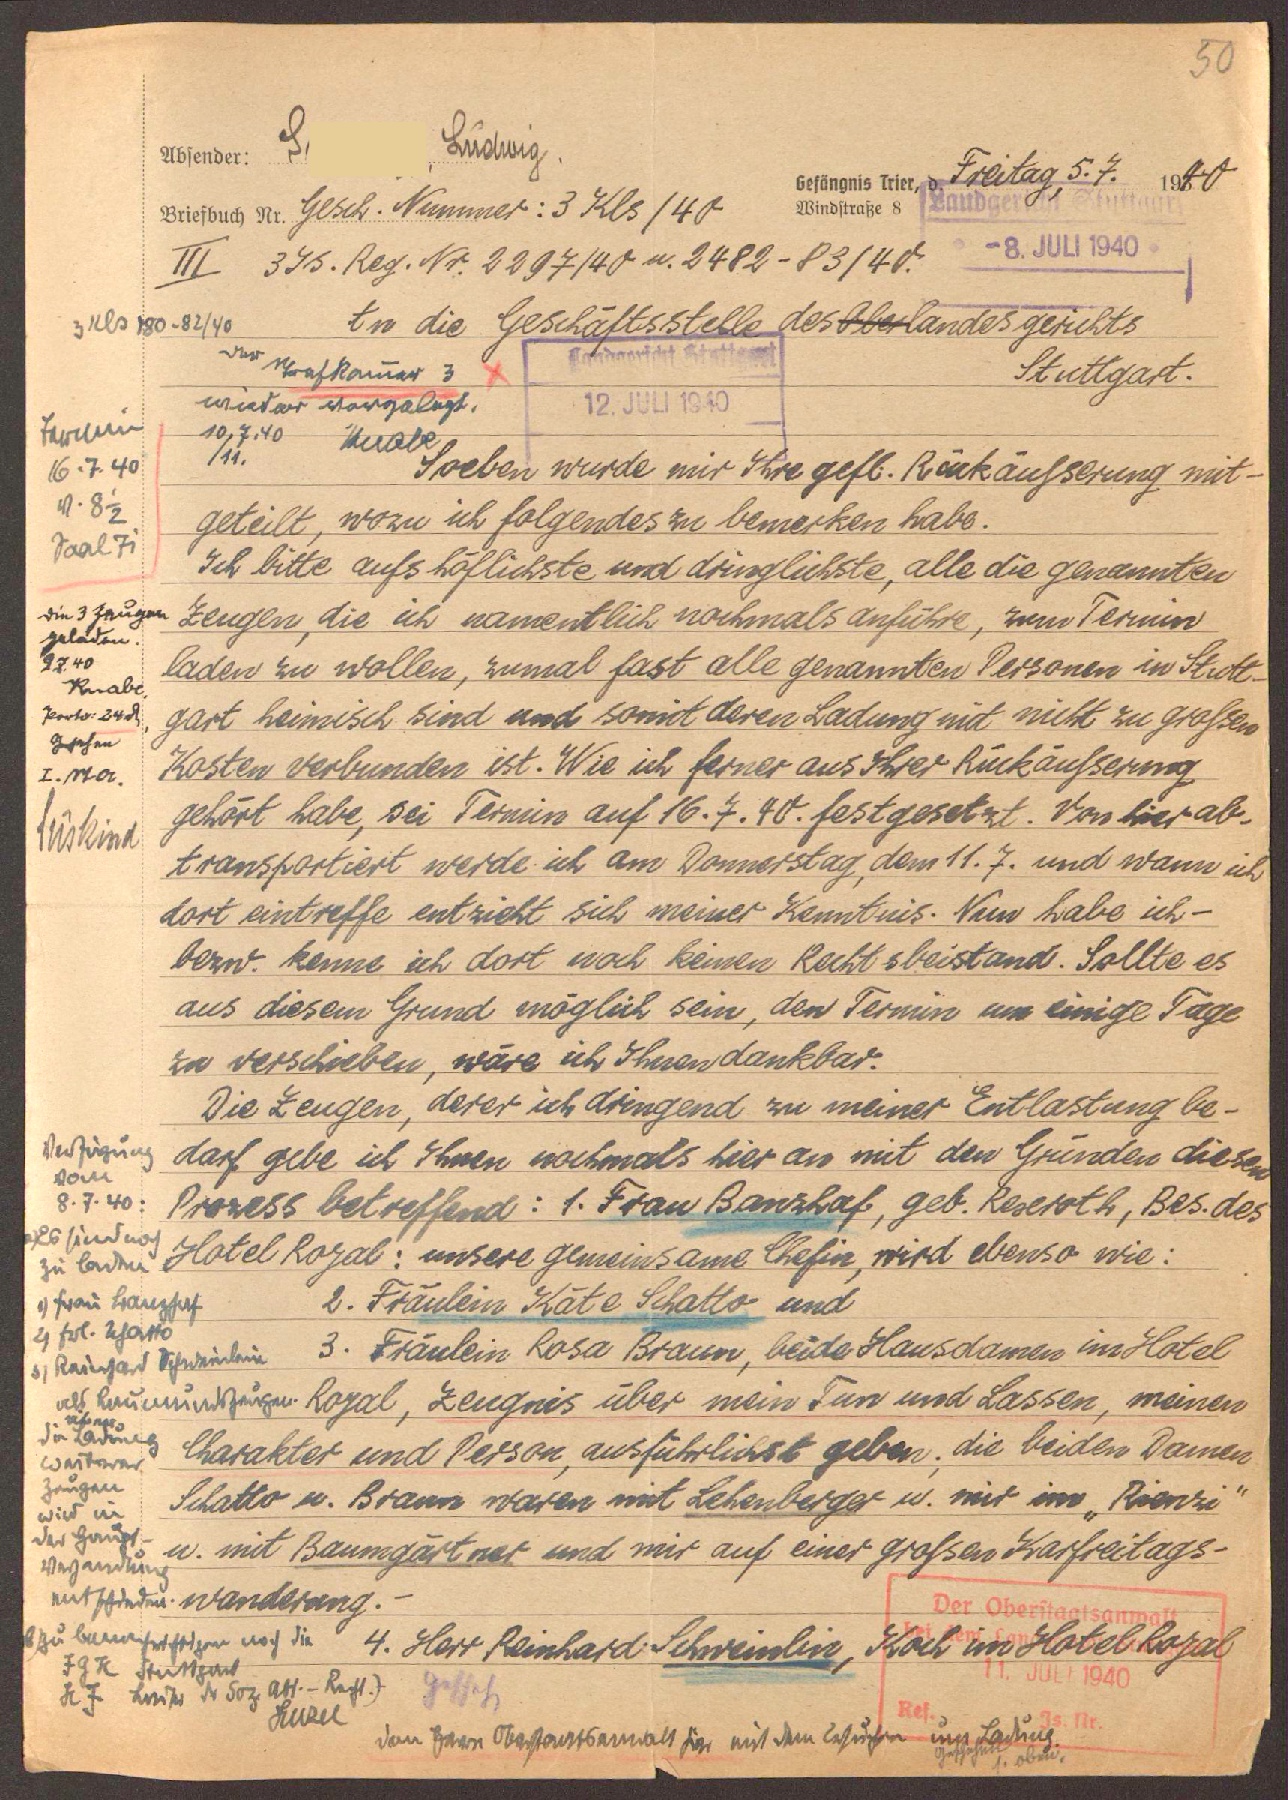 50
Absender: S , Ludwig.
Gefängnis Trier, d. Freitag, 5.7. 1940
Windstraße 8
Briefbuch Nr. Gesch. Nummer: 3 Kls/40
Landgericht Stuttgart
-8. JULI 1940
III 3 Js. Reg. Nr. 2297/40 u. 2482-83/40.
3 Kls 180-82/40
An die Geschäftsstelle des Oberlandesgerichts
Stuttgart.
der Strafkammer 3
wieder vorgelegt.
10.7.40 Knabe
/11.
Landgericht Stuttgart
12. JULI 1940
Termin
16.7.40
V. 8½
Saal 71
Soeben wurde mir Ihre gefl. Rückäusserung mit-
geteilt, wozu ich folgendes zu bemerken habe.
Ich bitte aufs höflichste und dringlichste, alle die genannten
Zeugen, die ich namentlich nochmals anführe, zum Termin
laden zu wollen, zumal fast alle genannten Personen in Stutt-
gart heimisch sind und somit deren Ladung mit nicht zu grossen
Kosten verbunden ist. Wie ich ferner aus Ihrer Rückäusserung
gehört habe, sei Termin auf 16.7.40. festgesetzt. Von hier ab-
transportiert werde ich am Donnerstag, dem 11.7. und wann ich
dort eintreffe entzieht sich meiner Kenntnis. Nun habe ich-
bezw. kenne ich dort noch keinen Rechtsbeistand. Sollte es
aus diesem Grund möglich sein, den Termin um einige Tage
zu verschieben, wäre ich Ihnen dankbar.
die 3 Zeugen
geladen.
9.7.40
Knabe.
Porto: 24 d.
Gesehen
I. StA.
Süskind
Die Zeugen, derer ich dringend zu meiner Entlastung be-
darf gebe ich Ihnen nochmals hier an mit den Gründen diesen
Prozess betreffend: 1. Frau Banzhaf, geb. Reseroth, Bes. des
Hotel Royal: unsere gemeinsame Chefin, wird ebenso wie:
2. Fräulein Käte Schatto und
3. Fräulein Rosa Braun, beide Hausdamen im Hotel
Royal, Zeugnis über mein Tun und Lassen, meinen
Charakter und Person, ausführlichst geben; die beiden Damen
Schatto u. Braun waren mit Lehenberger u. mir im „Rienzi"
u. mit Baumgärtner und mir auf einer grossen Karfreitags-
wanderung.-
4. Herr Reinhard Schweinlin, Koch im Hotel Royal
Verfügung
vom
8.7.40:
a) Es sind noch
zu laden
1) Frau Banzhaf
2) Frl. Schatto
3) Reinhard Schweinlein
als Leumundszeugen.
über
die Ladung
weiterer
Zeugen
wird in
der Haupt-
verhandlung
entschieden.
b) zu benachrichtigen noch die
JGH Stuttgart
Der Oberstaatsanwalt
bei dem Landgericht
11. JULI 1940
Ref. Js. Nr.
dem Herrn Oberstaatsanwalt hier mit dem Ersuchen um Ladung.
Geschehen
s. oben.